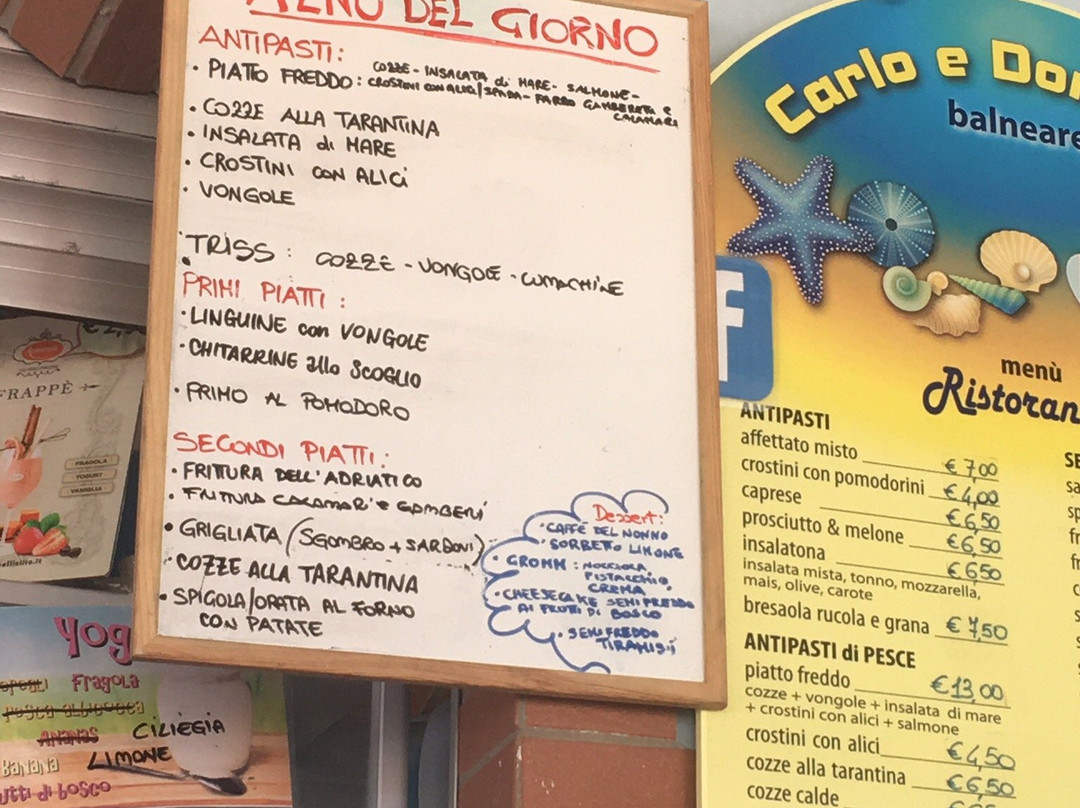 DEL GIORNO
ANTIPASTI:
• PIATTO FREDDO: COZZE - INSALATA di MARE - SALMONE -
CROSTINI CON ALICI/SPADA - FARRO GAMBERETTI E
CALAMARI
• COZZE ALLA TARANTINA
• INSALATA di MARE
• CROSTINI CON ALICI
• VONGOLE
• TRISS: COZZE - VONGOLE - LUMACHINE
PRIMI PIATTI:
• LINGUINE con VONGOLE
• CHITARRINE allo SCOGLIO
• PRIMO AL POMODORO
SECONDI PIATTI:
• FRITTURA DELL'ADRIATICO
• FRITTURA CALAMARI E GAMBERI
• GRIGLIATA (SGOMBRO + SARDONI)
• COZZE ALLA TARANTINA
• SPIGOLA/ORATA AL FORNO
CON PATATE
Dessert:
• CAFFÈ DEL NONNO
• SORBETTO LIMONE
• GROMM: NOCCIOLA
PISTACCHIO
CREMA
• CHEESECAKE SEMIFREDDO
AI FRUTTI DI BOSCO
• SEMIFREDDO
TIRAMISÙ
Carlo e Don
balneare
f
menù
Ristoran
ANTIPASTI
affettato misto € 7,00
crostini con pomodorini € 4,00
caprese € 6,50
prosciutto & melone € 6,50
insalatona € 6,50
insalata mista, tonno, mozzarella,
mais, olive, carote
bresaola rucola e grana € 7,50
ANTIPASTI di PESCE
piatto freddo € 13,00
cozze + vongole + insalata di mare
+ crostini con alici + salmone
crostini con alici € 4,50
cozze alla tarantina € 6,50
cozze calde
SE
sa
sp
fr
FRAPPÈ
FRAGOLA
YOGURT
VANIGLIA
Yog
Fragola
Pesca albicocca
Ananas CILIEGIA
Banana LIMONE
utti di bosco